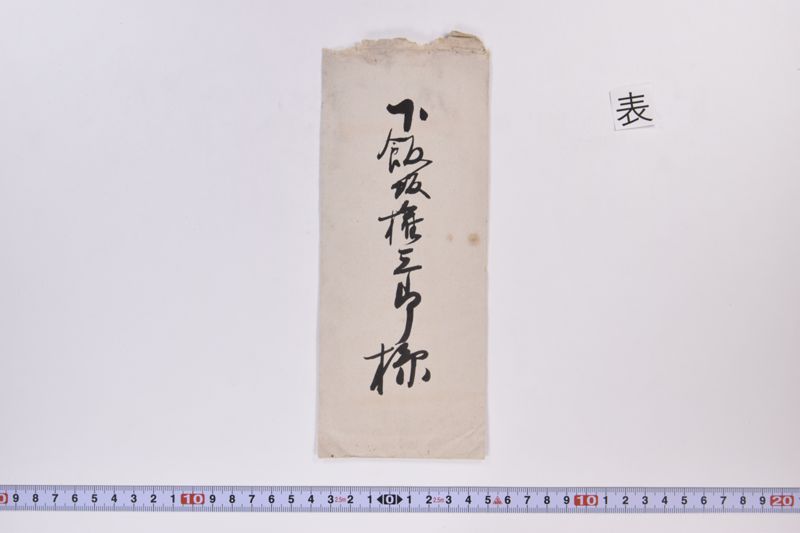 下飯坂権三郎様
表
0 9 8 7 6 5 4 3 2 1 10 9 8 7 6 5 4 3 2.5m 2 1 0 1 2 2.5m 3 4 5 6 7 8 9 10 1 2 3 4 5 6 7 8 9 20